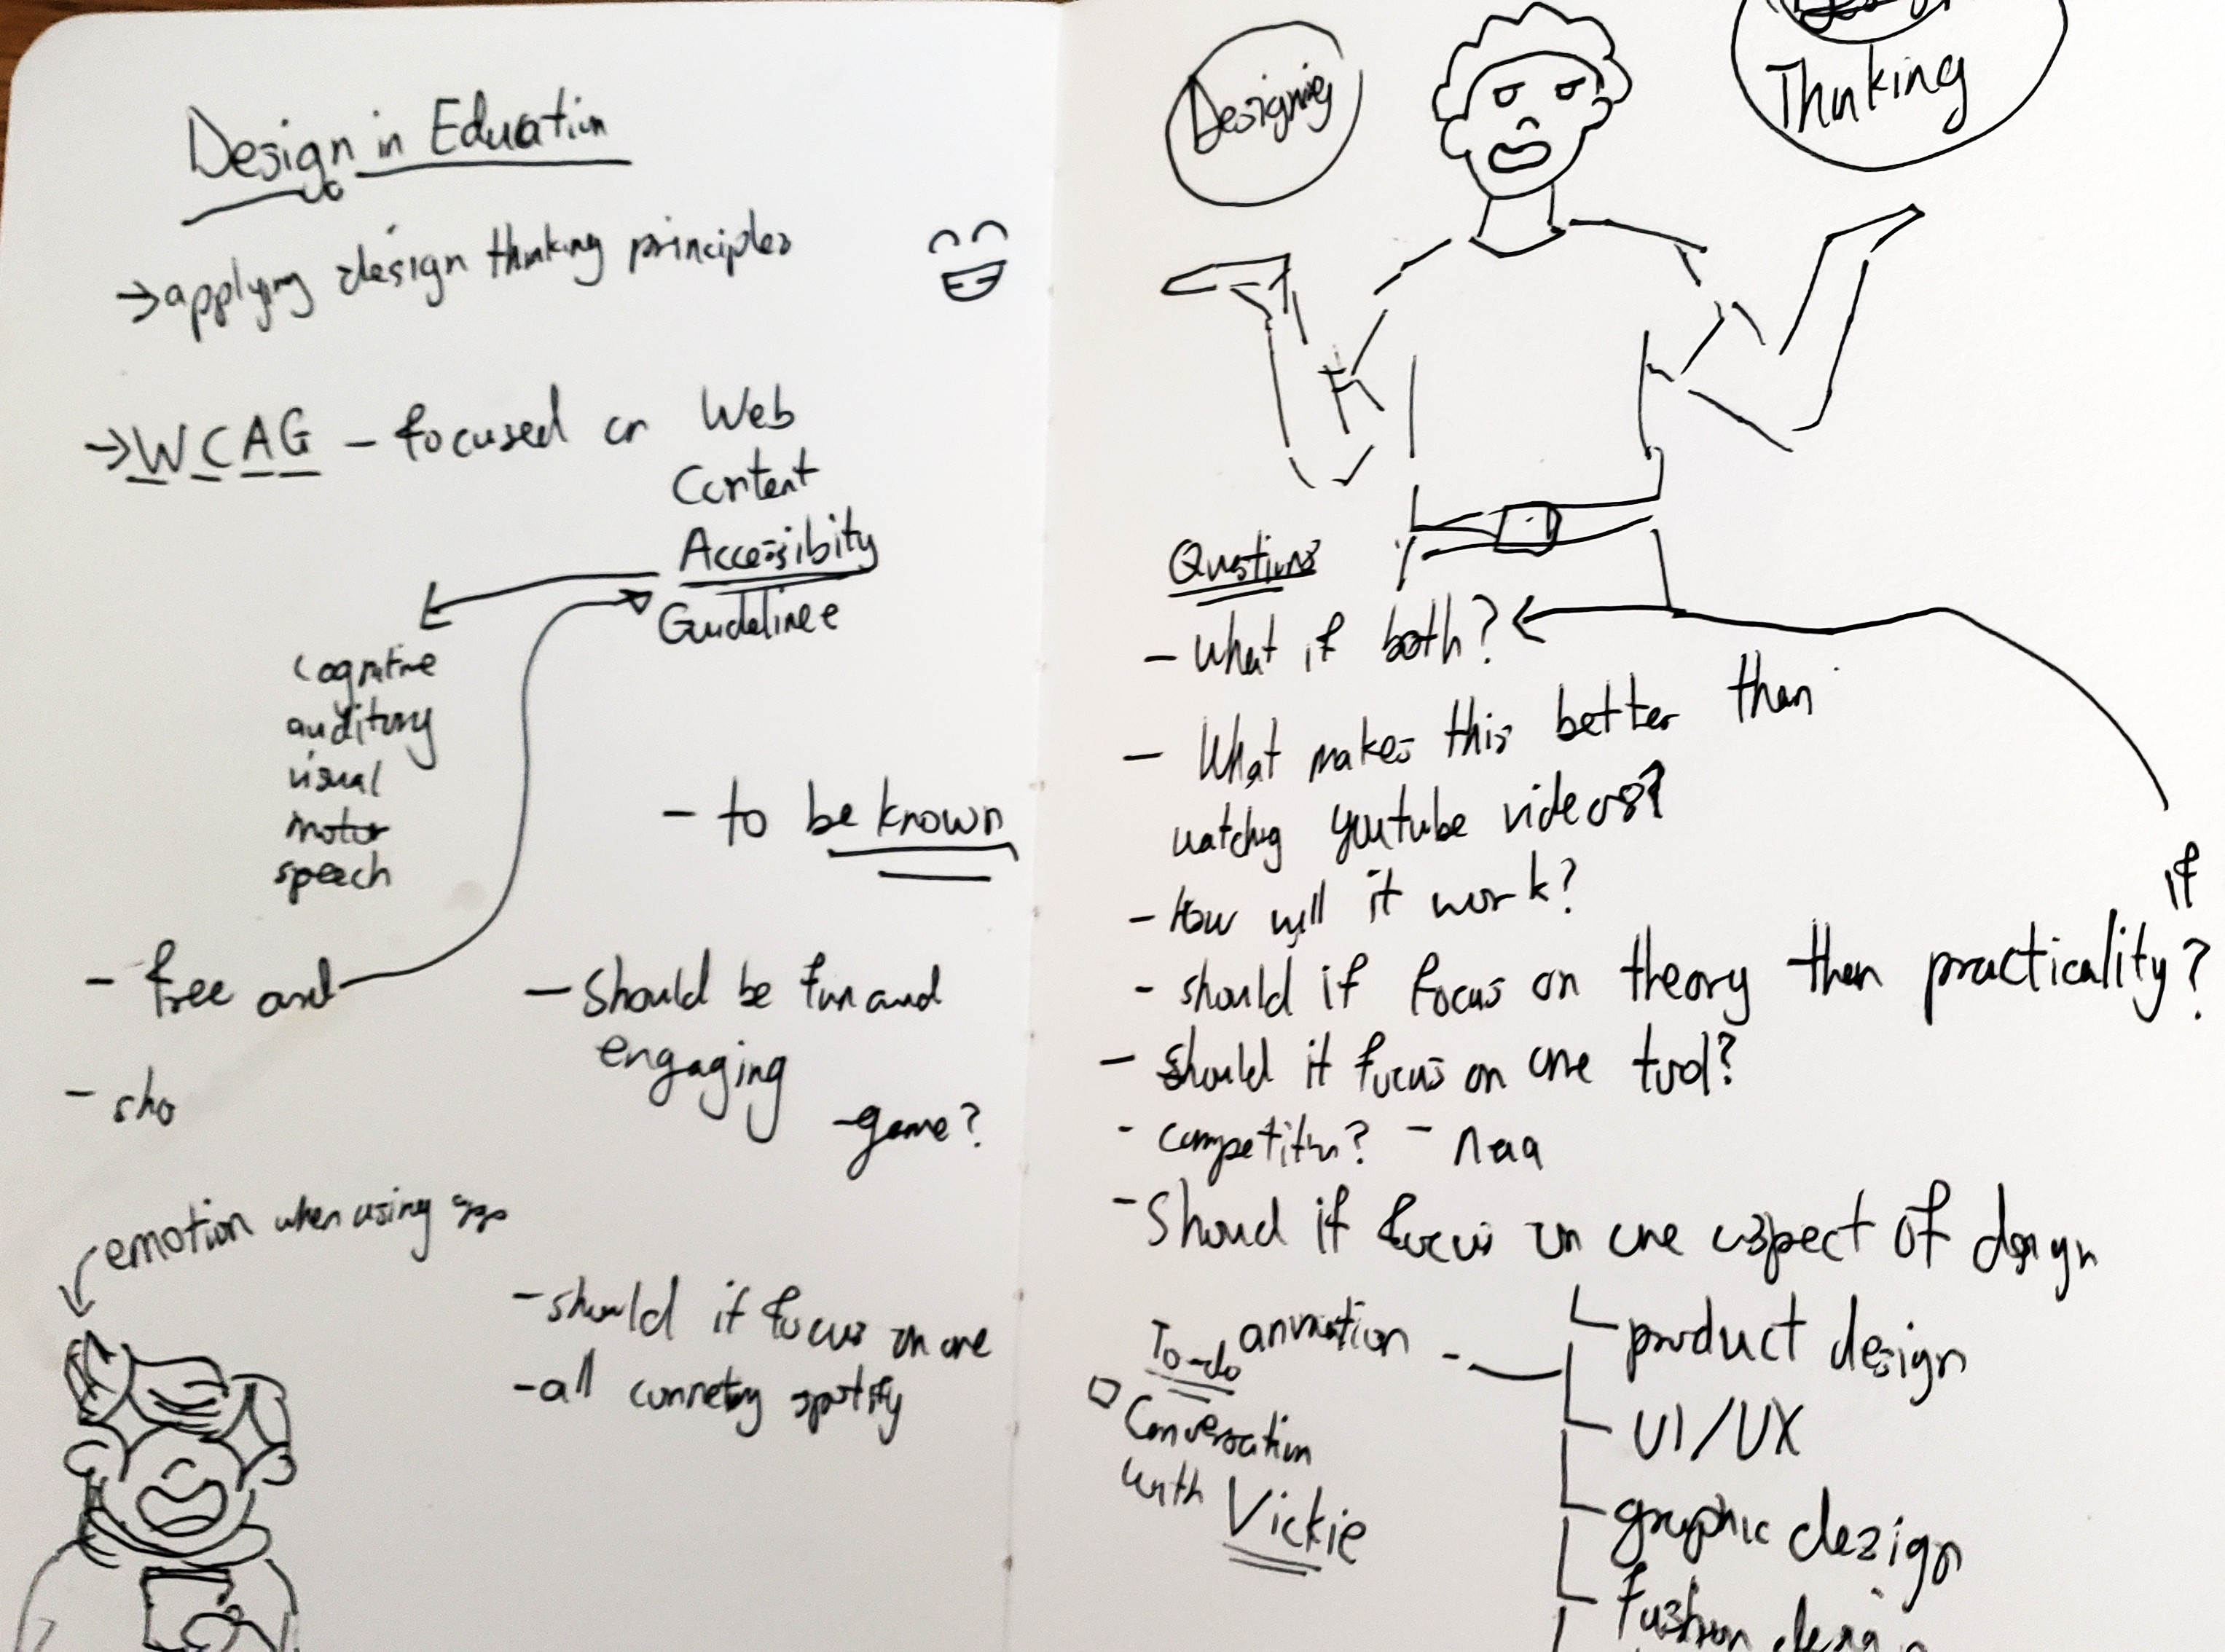 Design in Eduation
→ applying design thinking principles
→ WCAG - focused on Web
Content
Accessibity
Guideline
cognitive
auditory
visual
motor
speech
- to be known
- free and
- should be fun and
engaging
- sho
- game?
emotion when using app
- should it focus on one
- all spotify
Designing
Thinking
Questions
- What if both?
- What makes this better than
watching youtube videos?
- How will it work?
if
- should it focus on theory then practicality?
- should it focus on one tool?
- competition? - naa
- Shoud it focus on one aspect of design
product design
animation
UI/UX
graphic design
fashion design
To-do
Conversation
with Vickie